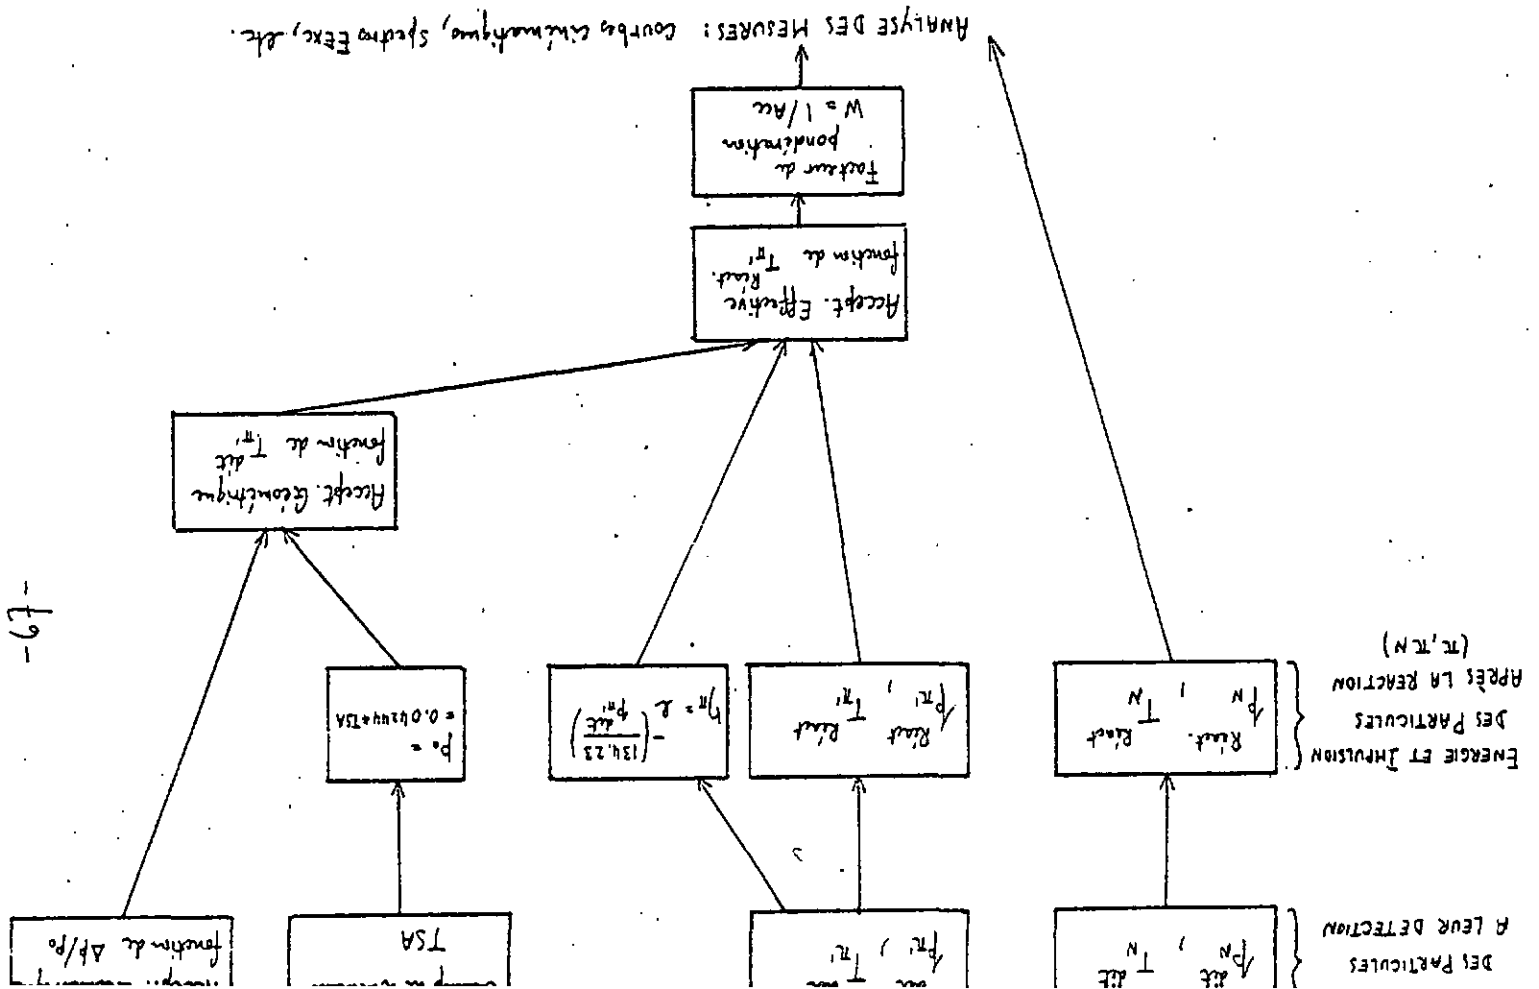 DES PARTICULES
A LEUR DETECTION
p_N^dét , T_N^dét
p_π'^dét , T_π'^dét
TSA
fonction de Δp/p₀
ENERGIE ET IMPULSION
DES PARTICULES
APRÈS LA REACTION
(π, π N)
p_N^Réact. , T_N^Réact
p_π'^Réact , T_π'^Réact
η_π = e^-(134,23/p_π'^dét)
p₀ =
= 0,04244*TSA
-67-
Accept. Géométrique
fonction de T_π'^dét
Accept. Effective
fonction de T_π'^Réact.
Facteur de
pondération
W = 1/Acc
ANALYSE DES MESURES : Courbes Cinématiques, Spectres EExc, etc.